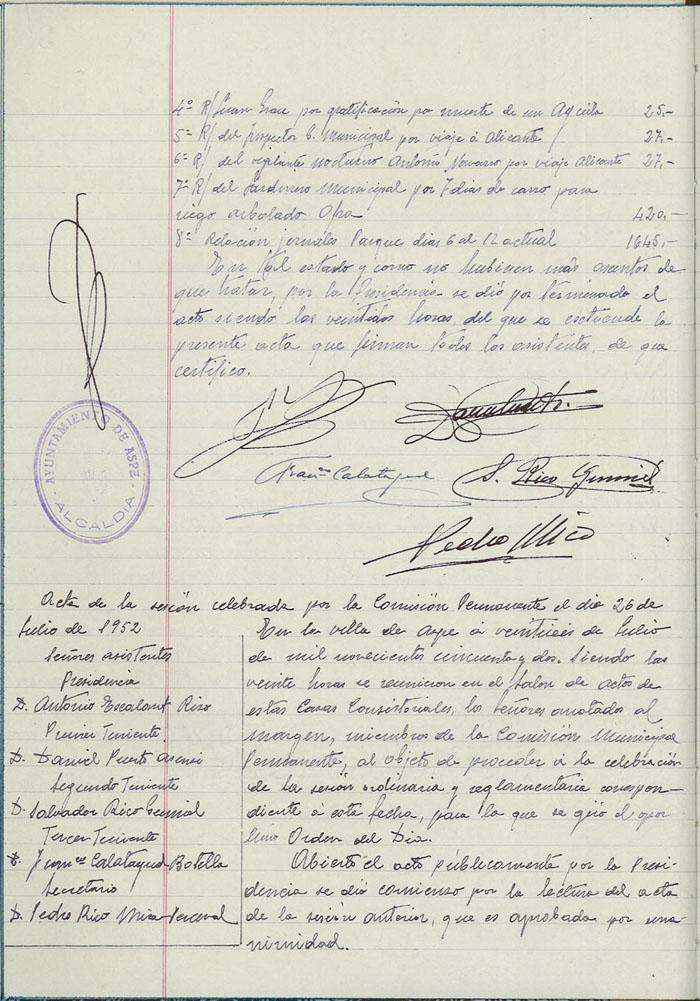 4º R/ Juan Grau por gratificación por muerte de un Aguila 25,-
5º R/ del Inspector G. Municipal por viaje á Alicante 27,-
6º R/ del vigilante nocturno Antonio Navarro por viaje Alicante 27,-
7º R/ del Jardinero Municipal por 7 dias de carro para
riego arbolado Ofra 420,-
8º Relación jornales Parque dias 6 al 12 actual 1645,-
En tal estado y como no hubiesen más asuntos de
que tratar, por la Presidencia se dió por terminado el
acto siendo las veintidos horas, del que se extiende la
presente acta que firman todos los asistentes, de que
certifico.
AYUNTAMIENTO DE ASPE
ALCALDIA
Franco Calatayud
S. Rico Gumiel
Pedro Mico
Acta de la sesión celebrada por la Comisión Permanente el dia 26 de
Julio de 1952
Señores asistentes
Presidencia
D. Antonio Escalant Rizo
Primer Teniente
D. Daniel Puerto Asensi
Segundo Teniente
D. Salvador Rico Gumial
Tercer Teniente
D. Franco Calatayud Botella
Secretario
D. Pedro Rico Mira-Perceval
En la villa de Aspe á veintiséis de Julio
de mil novecientos cincuenta y dos. Siendo las
veinte horas se reunieron en el salon de actos de
estas Casas Consistoriales, los señores anotados al
margen, miembros de la Comisión Municipal
Permanente, al objeto de proceder á la celebración
de la sesión ordinaria y reglamentaria correspon-
diente á esta fecha, para la que se giró el opor-
tuno Orden del Dia.
Abierto el acto públicamente por la Presi-
dencia se dió comienzo por la lectura del acta
de la sesión anterior, que es aprobada por una-
nimidad.